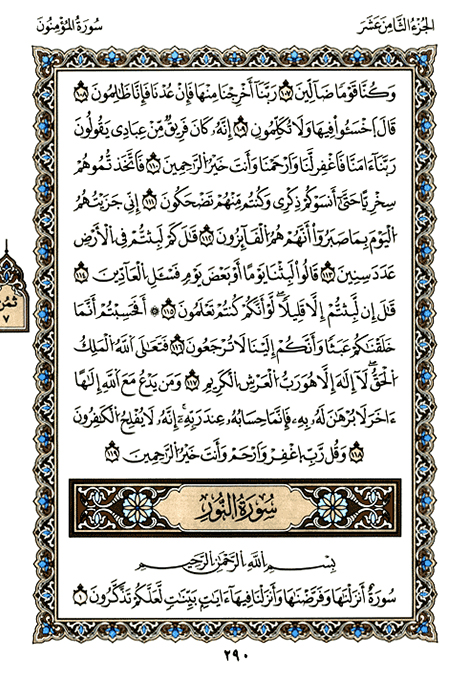 الجُزْءُ الثَّامِنَ عَشَرَ
سُورَةُ المُؤْمِنُونَ
وَكُنَّا قَوْمًا ضَآلِّينَ ١٠٧ رَبَّنَآ أَخْرِجْنَا مِنْهَا فَإِنْ عُدْنَا فَإِنَّا ظَٰلِمُونَ ١٠٨
قَالَ اَخْسَـُٔواْ فِيهَا وَلَا تُكَلِّمُونِ ١٠٩ إِنَّهُۥ كَانَ فَرِيقٌ مِّنْ عِبَادِے يَقُولُونَ
رَبَّنَآ ءَامَنَّا فَاغْفِرْ لَنَا وَارْحَمْنَا وَأَنتَ خَيْرُ اُلرَّٰحِمِينَ ١١٠ فَاتَّخَذتُّمُوهُمْ
سُخْرِيًّا حَتَّىٰٓ أَنسَوْكُمْ ذِكْرِے وَكُنتُم مِّنْهُمْ تَضْحَكُونَ ١١١ إِنِّے جَزَيْتُهُمُ
اُلْيَوْمَ بِمَا صَبَرُوٓاْ أَنَّهُمْ هُمُ اُلْفَآئِزُونَ ١١٢ قَٰلَ كَمْ لَبِثْتُمْ فِے اِلْأَرْضِ
عَدَدَ سِنِينَ ١١٣ قَالُواْ لَبِثْنَا يَوْمًا أَوْ بَعْضَ يَوْمٍ فَسْـَٔلِ اِلْعَآدِّينَ ١١٤
قَٰلَ إِن لَّبِثْتُمْ إِلَّا قَلِيلًا لَّوْ أَنَّكُمْ كُنتُمْ تَعْلَمُونَ ١١٥ ۞ أَفَحَسِبْتُمْ أَنَّمَا
خَلَقْنَٰكُمْ عَبَثًا وَأَنَّكُمْ إِلَيْنَا لَا تُرْجَعُونَ ١١٦ فَتَعَٰلَى اَللَّهُ اُلْمَلِكُ
اُلْحَقُّ لَآ إِلَٰهَ إِلَّا هُوَ رَبُّ اُلْعَرْشِ اِلْكَرِيمِ ١١٧ وَمَنْ يَدْعُ مَعَ اَللَّهِ إِلَٰهًا
ءَاخَرَ لَا بُرْهَٰنَ لَهُۥ بِهِۦ فَإِنَّمَا حِسَابُهُۥ عِندَ رَبِّهِۦٓ إِنَّهُۥ لَا يُفْلِحُ اُلْكَٰفِرُونَ
١١٨ وَقُل رَّبِّ اِغْفِرْ وَارْحَمْ وَأَنتَ خَيْرُ اُلرَّٰحِمِينَ ١١٩
سُورَةُ النُّورِ
بِسْمِ اِللَّهِ اِلرَّحْمَٰنِ اِلرَّحِيمِ
سُورَةٌ أَنزَلْنَٰهَا وَفَرَضْنَٰهَا وَأَنزَلْنَا فِيهَآ ءَايَٰتِۭ بَيِّنَٰتٍ لَّعَلَّكُمْ تَذَّكَّرُونَ ١
ثمن
٧
٢٩٠